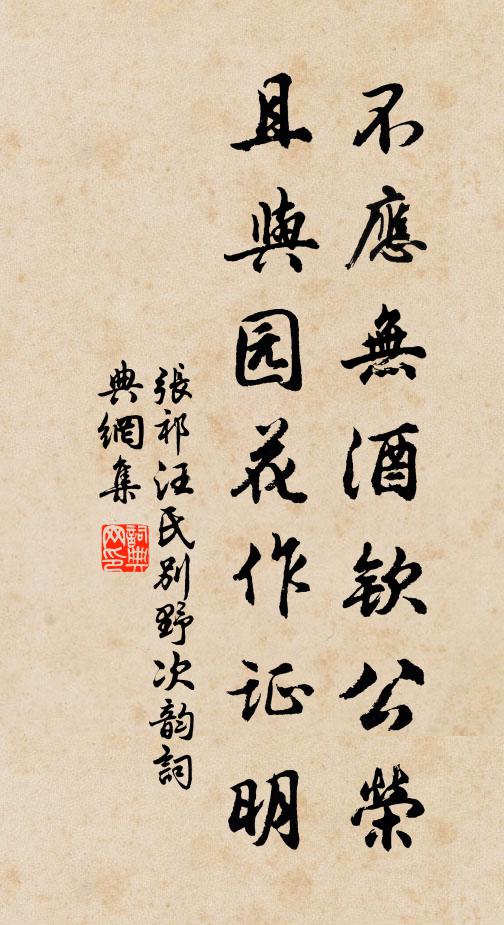 不應無酒欽公榮
且與园花作证明
張祁汪氏別野次韵詞
典網集
詞典网印